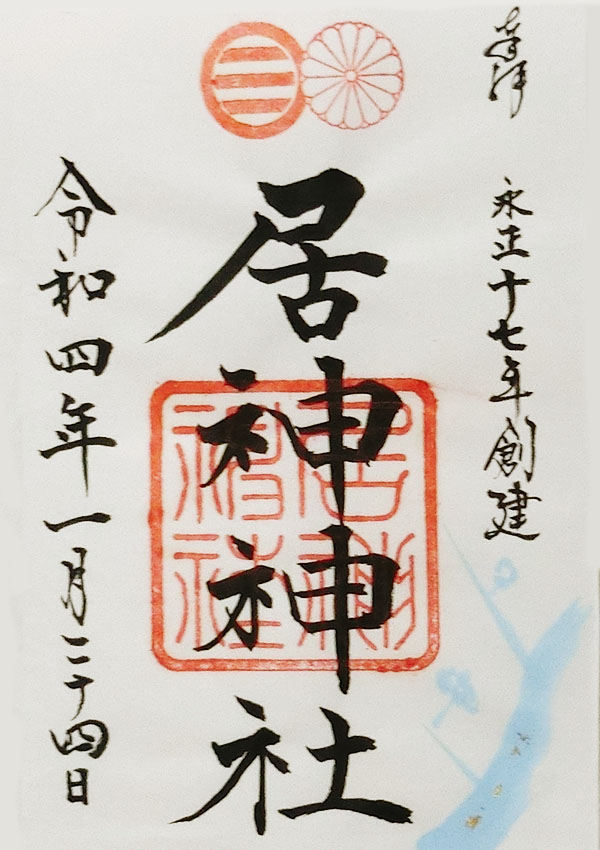 奉拝
永正十七年創建
居神神社
令和四年一月二十四日